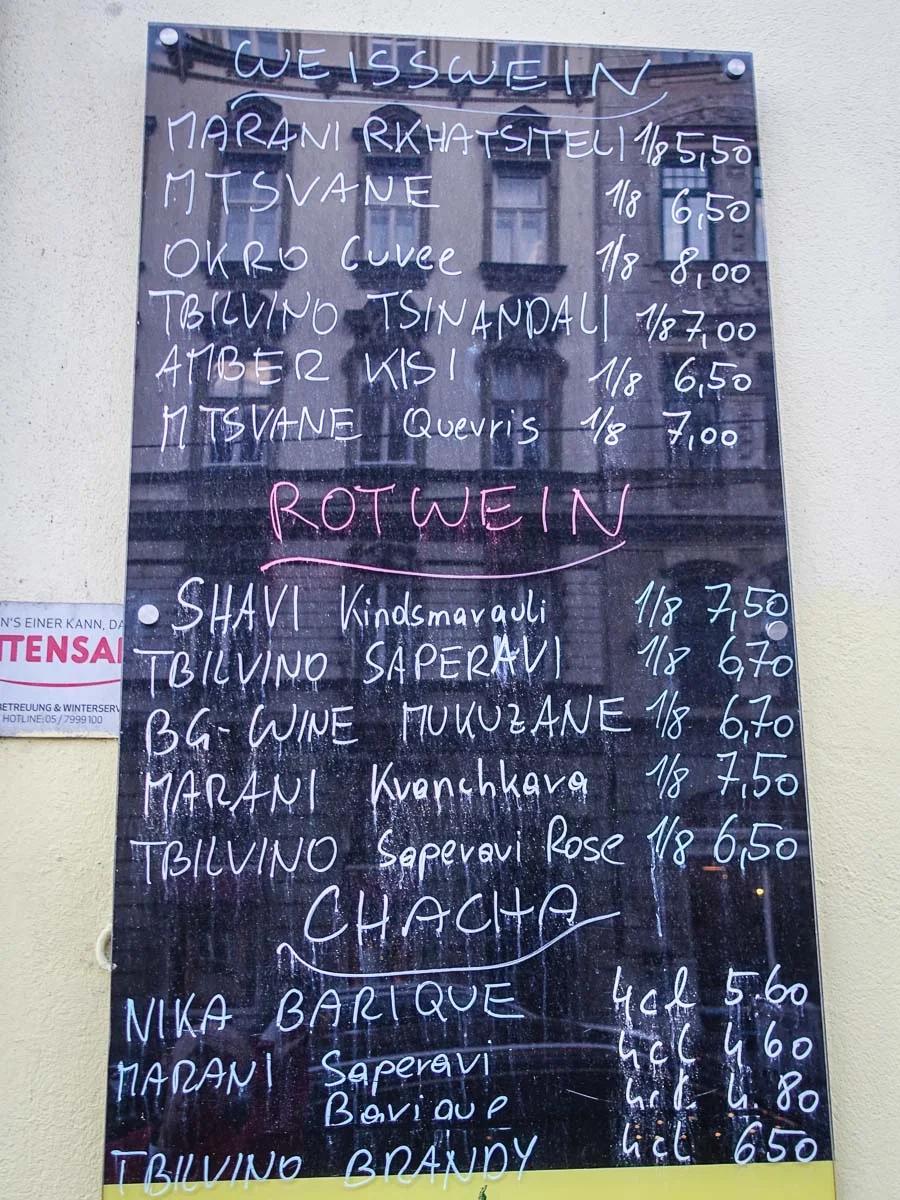 WEISSWEIN
MARANI RKHATSITELI 1/8 5,50
MTSVANE 1/8 6,50
OKRO Cuvee 1/8 8,00
TBILVINO TSINANDALI 1/8 7,00
AMBER KISI 1/8 6,50
MTSVANE Quevris 1/8 7,00
ROTWEIN
SHAVI Kindsmarauli 1/8 7,50
TBILVINO SAPERAVI 1/8 6,70
BG-WINE MUKUZANE 1/8 6,70
MARANI Kvanchkara 1/8 7,50
TBILVINO Saperavi Rose 1/8 6,50
CHACHA
NIKA BARIQUE 4cl 5.60
MARANI Saperavi 4cl 4 60
Barique 4cl 4.80
TBILVINO BRANDY 4cl 650
N'S EINER KANN, DA
TTENSA
BETREUUNG & WINTERSERV
HOTLINE: 05 / 7999 100